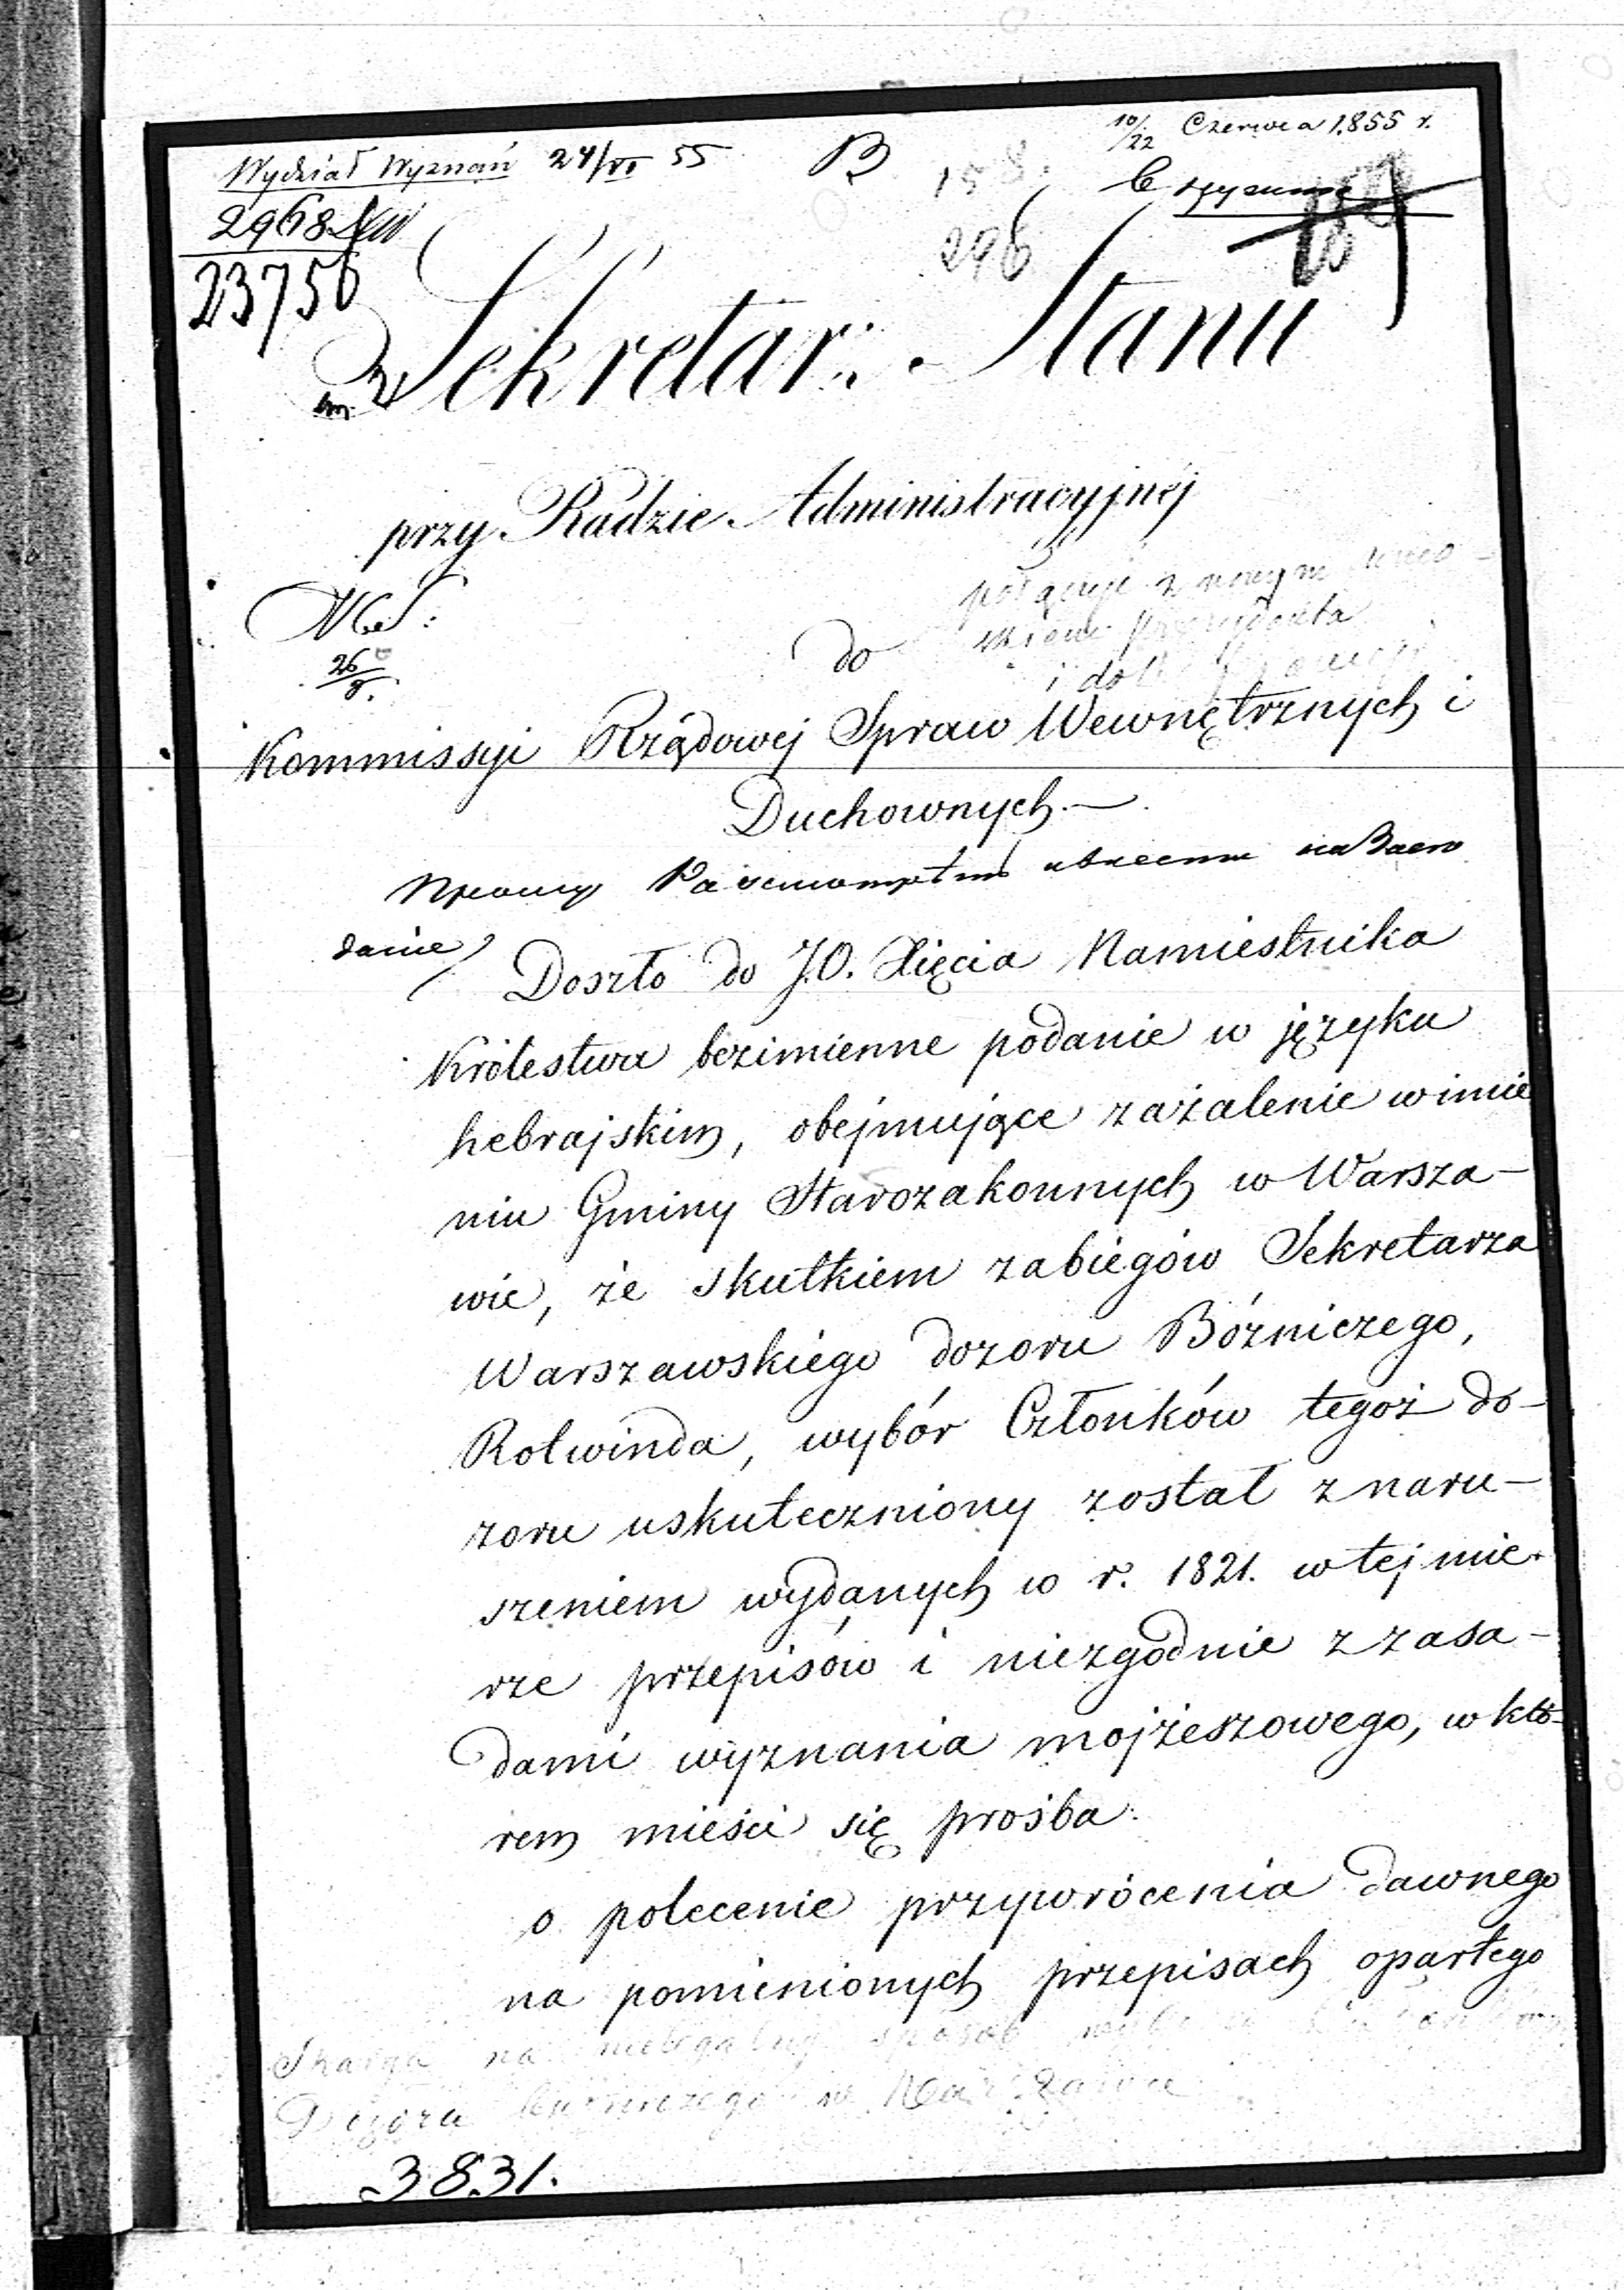 10/22 Czerwca 1,855 r.
Wydział Wyznań 24/VI 55
B
158.
2968
296
23756
Sekretarz Stanu
przy Radzie Administracyjnéj
połączyć z
26
do
Prezydenta
i do
Kommissyi Rządowej Spraw Wewnętrznych i
Duchownych.—
Doszło do J.O. Xięcia Namiestnika
Królestwa bezimienne podanie w języku
hebrajskim, obejmujące zażalenie w imie
niu Gminy Starozakonnych w Warsza-
wie, że skutkiem zabiegów Sekretarza
Warszawskiego dozoru Bóźniczego,
Rotwinda, wybór Członków tegoż do-
zoru uskuteczniony został z naru-
szeniem wydanych w r. 1821. w tej mie-
rze przepisów i niezgodnie z zasa-
dami wyznania mojżeszowego, w któ-
rem mieści się prośba:
o polecenie przywrócenia dawnego
na pomienionych przepisach opartego
Skarga na nielegalny sposób
Dozoru bużniczego w Warszawie
3831.